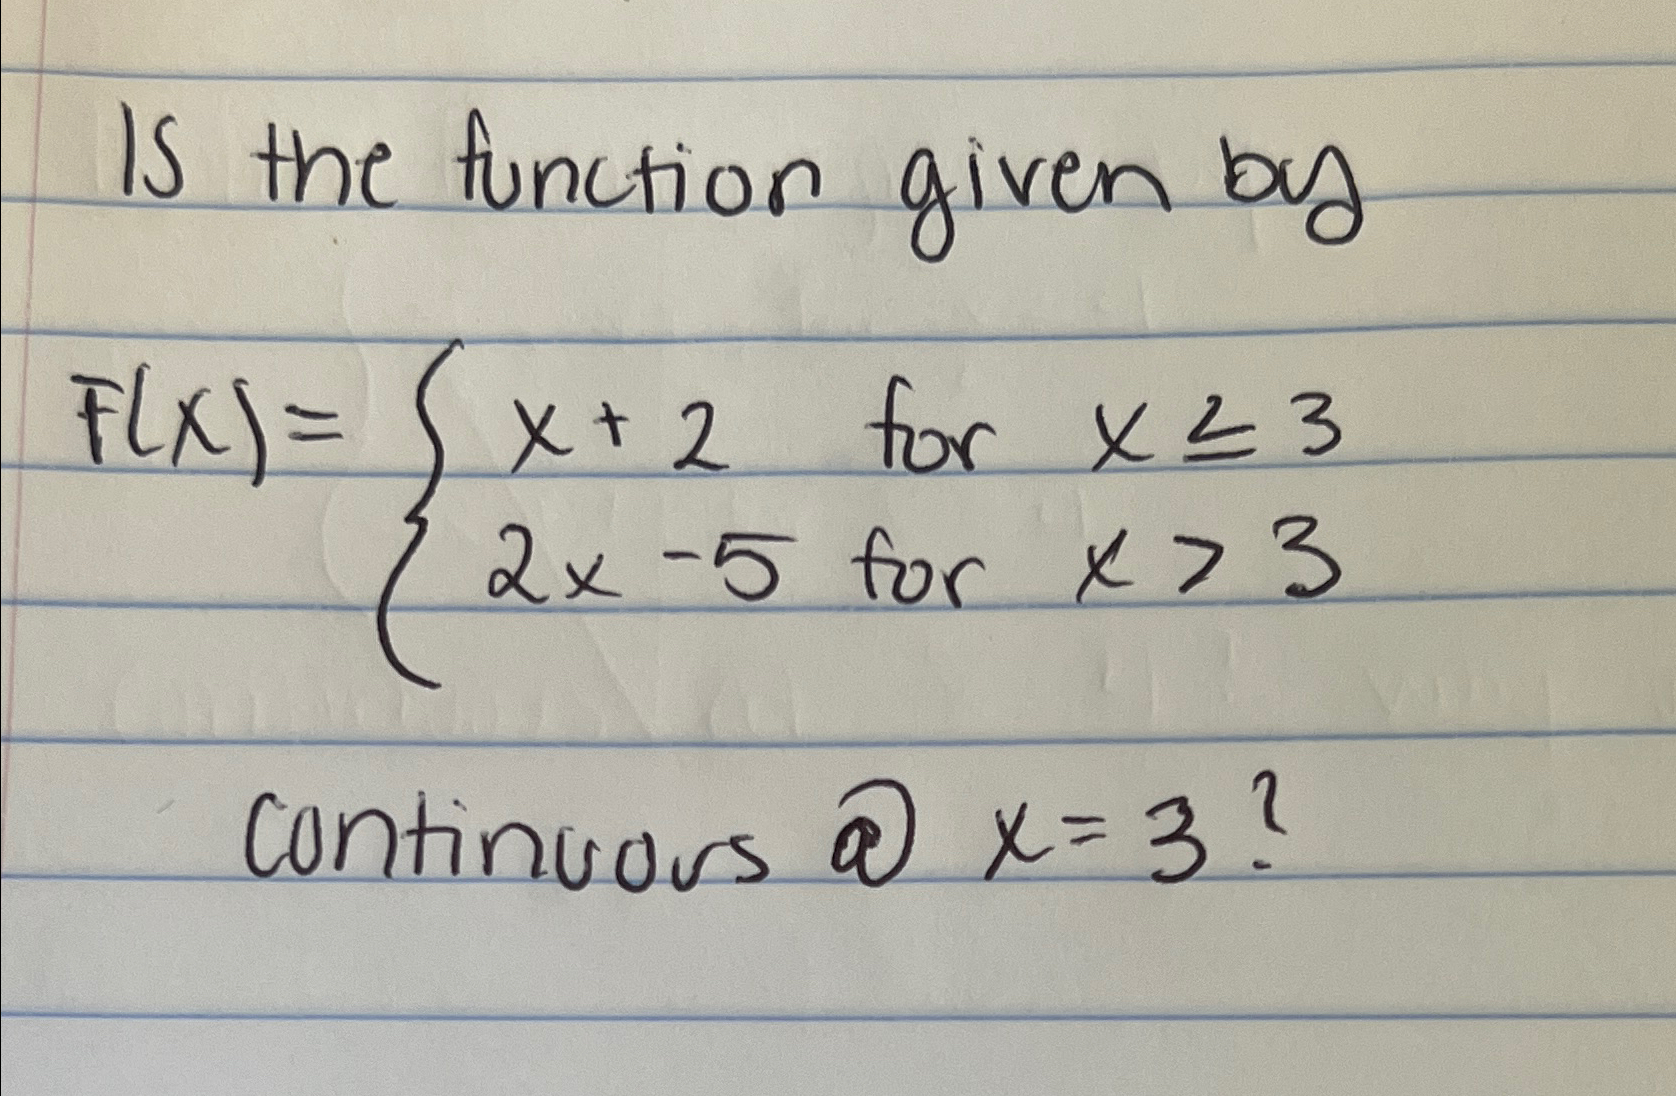 Is the function given by
F(x) = { x + 2 for x ≤ 3
2x - 5 for x > 3
continuous @ x = 3?